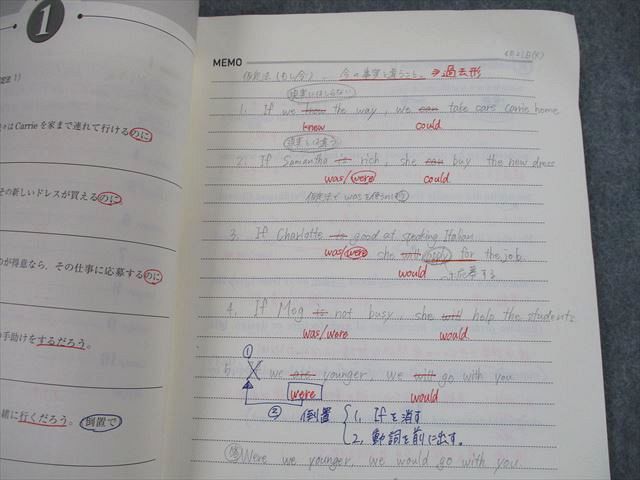 1
らはCarrieを家まで連れて行けるのに
その新しいドレスが買えるのに
のが得意なら，その仕事に応募するのに
の手助けをするだろう。
緒に行くだろう。 倒置で
MEMO
4月21日(火)
仮定法(もし今) 今の事実と違うこと。⇒過去形
現実にはしらない
1. If we know the way, we can take cars Carrie home
knew could
現実とは違う
2. If Samantha is rich, she can buy the new dress
was/were could
3. If Charlotte is good at speaking Italian
was/were she will apply for the job.
would →応募する
4. If Meg is not busy, she will help the students
was/were would
①
5. If we are younger, we will go with you
were would
② 倒置 1. Ifを消す
2. 動詞を前に出す。
Were we younger, we would go with you.